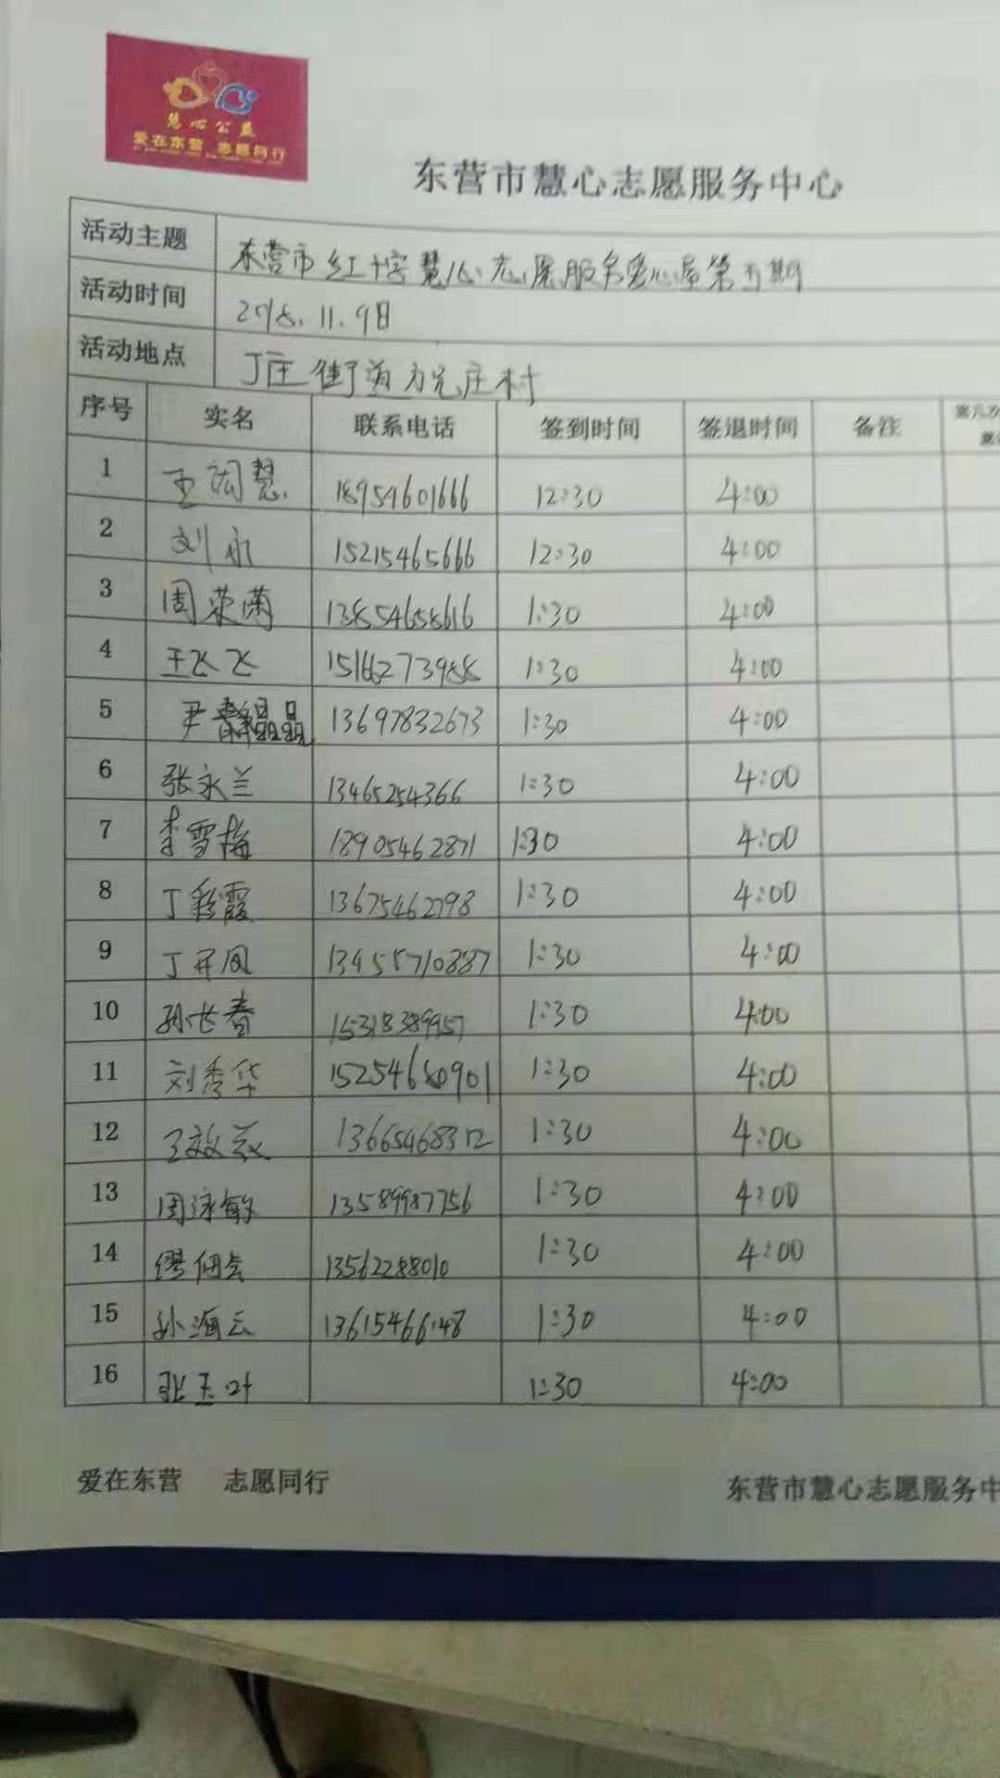 慧心公益
爱在东营 志愿同行
东营市慧心志愿服务中心
活动主题 东营市红十字慧心志愿服务爱心屋第五期
活动时间 2018.11.9日
活动地点 丁庄街道 庄村
序号 实名 联系电话 签到时间 签退时间 备注 第几次
1 王 慧 18954601666 12:30 4:00
2 刘永 15215465666 12:30 4:00
3 周荣 13854658616 1:30 4:00
4 王飞飞 1:30 4:00
5 尹静晶 13697832673 1:30 4:00
6 张永兰 13465254366 1:30 4:00
7 李雪梅 18905462871 1:30 4:00
8 丁彩霞 13675462798 1:30 4:00
9 丁开凤 13455710887 1:30 4:00
10 孙长春 15318389957 1:30 4:00
11 刘秀华 15254680901 1:30 4:00
12 王效 13665468312 1:30 4:00
13 周泳敏 13589987756 1:30 4:00
14 缪佃会 13562288010 1:30 4:00
15 孙海云 13615466148 1:30 4:00
16 张玉叶 1:30 4:00
爱在东营 志愿同行 东营市慧心志愿服务中